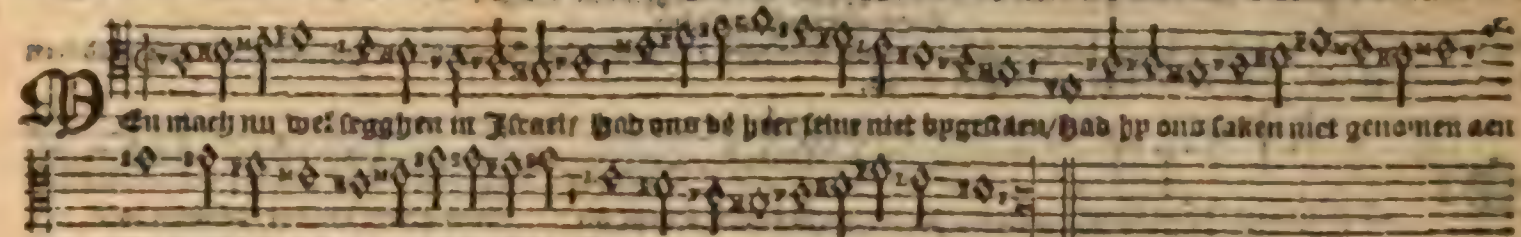 MEn mach nu wel segghen in Israel/ Had ons de heer selve niet bygestaen/ Had hy ons saken niet genomen aen